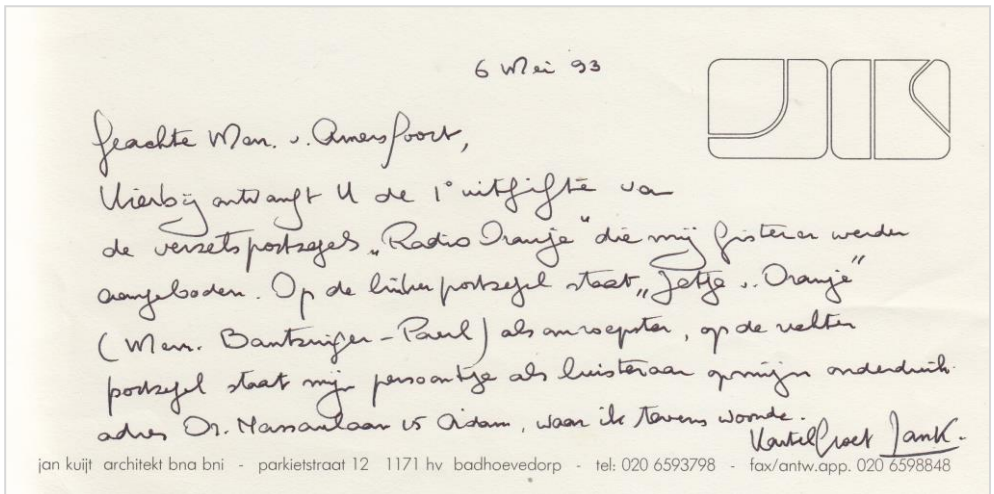 6 Mei 93
JK
Geachte Mevr. v. Amersfoort,
Hierbij ontvangt U de 1e uitgifte van
de verzetspostzegels „Radio Oranje” die mij gisteren werden
aangeboden. Op de linker postzegel staat „Jetje v. Oranje”
(Mevr. - Paerl) als omroepster, op de rechter
postzegel staat mijn persoontje als luisteraar op mijn onderduik-
adres Dr. 15 A'dam, waar ik tevens woonde.
Hartel. Groet JanK.
jan kuijt architekt bna bni - parkietstraat 12 1171 hv badhoevedorp - tel: 020 6593798 - fax/antw.app. 020 6598848